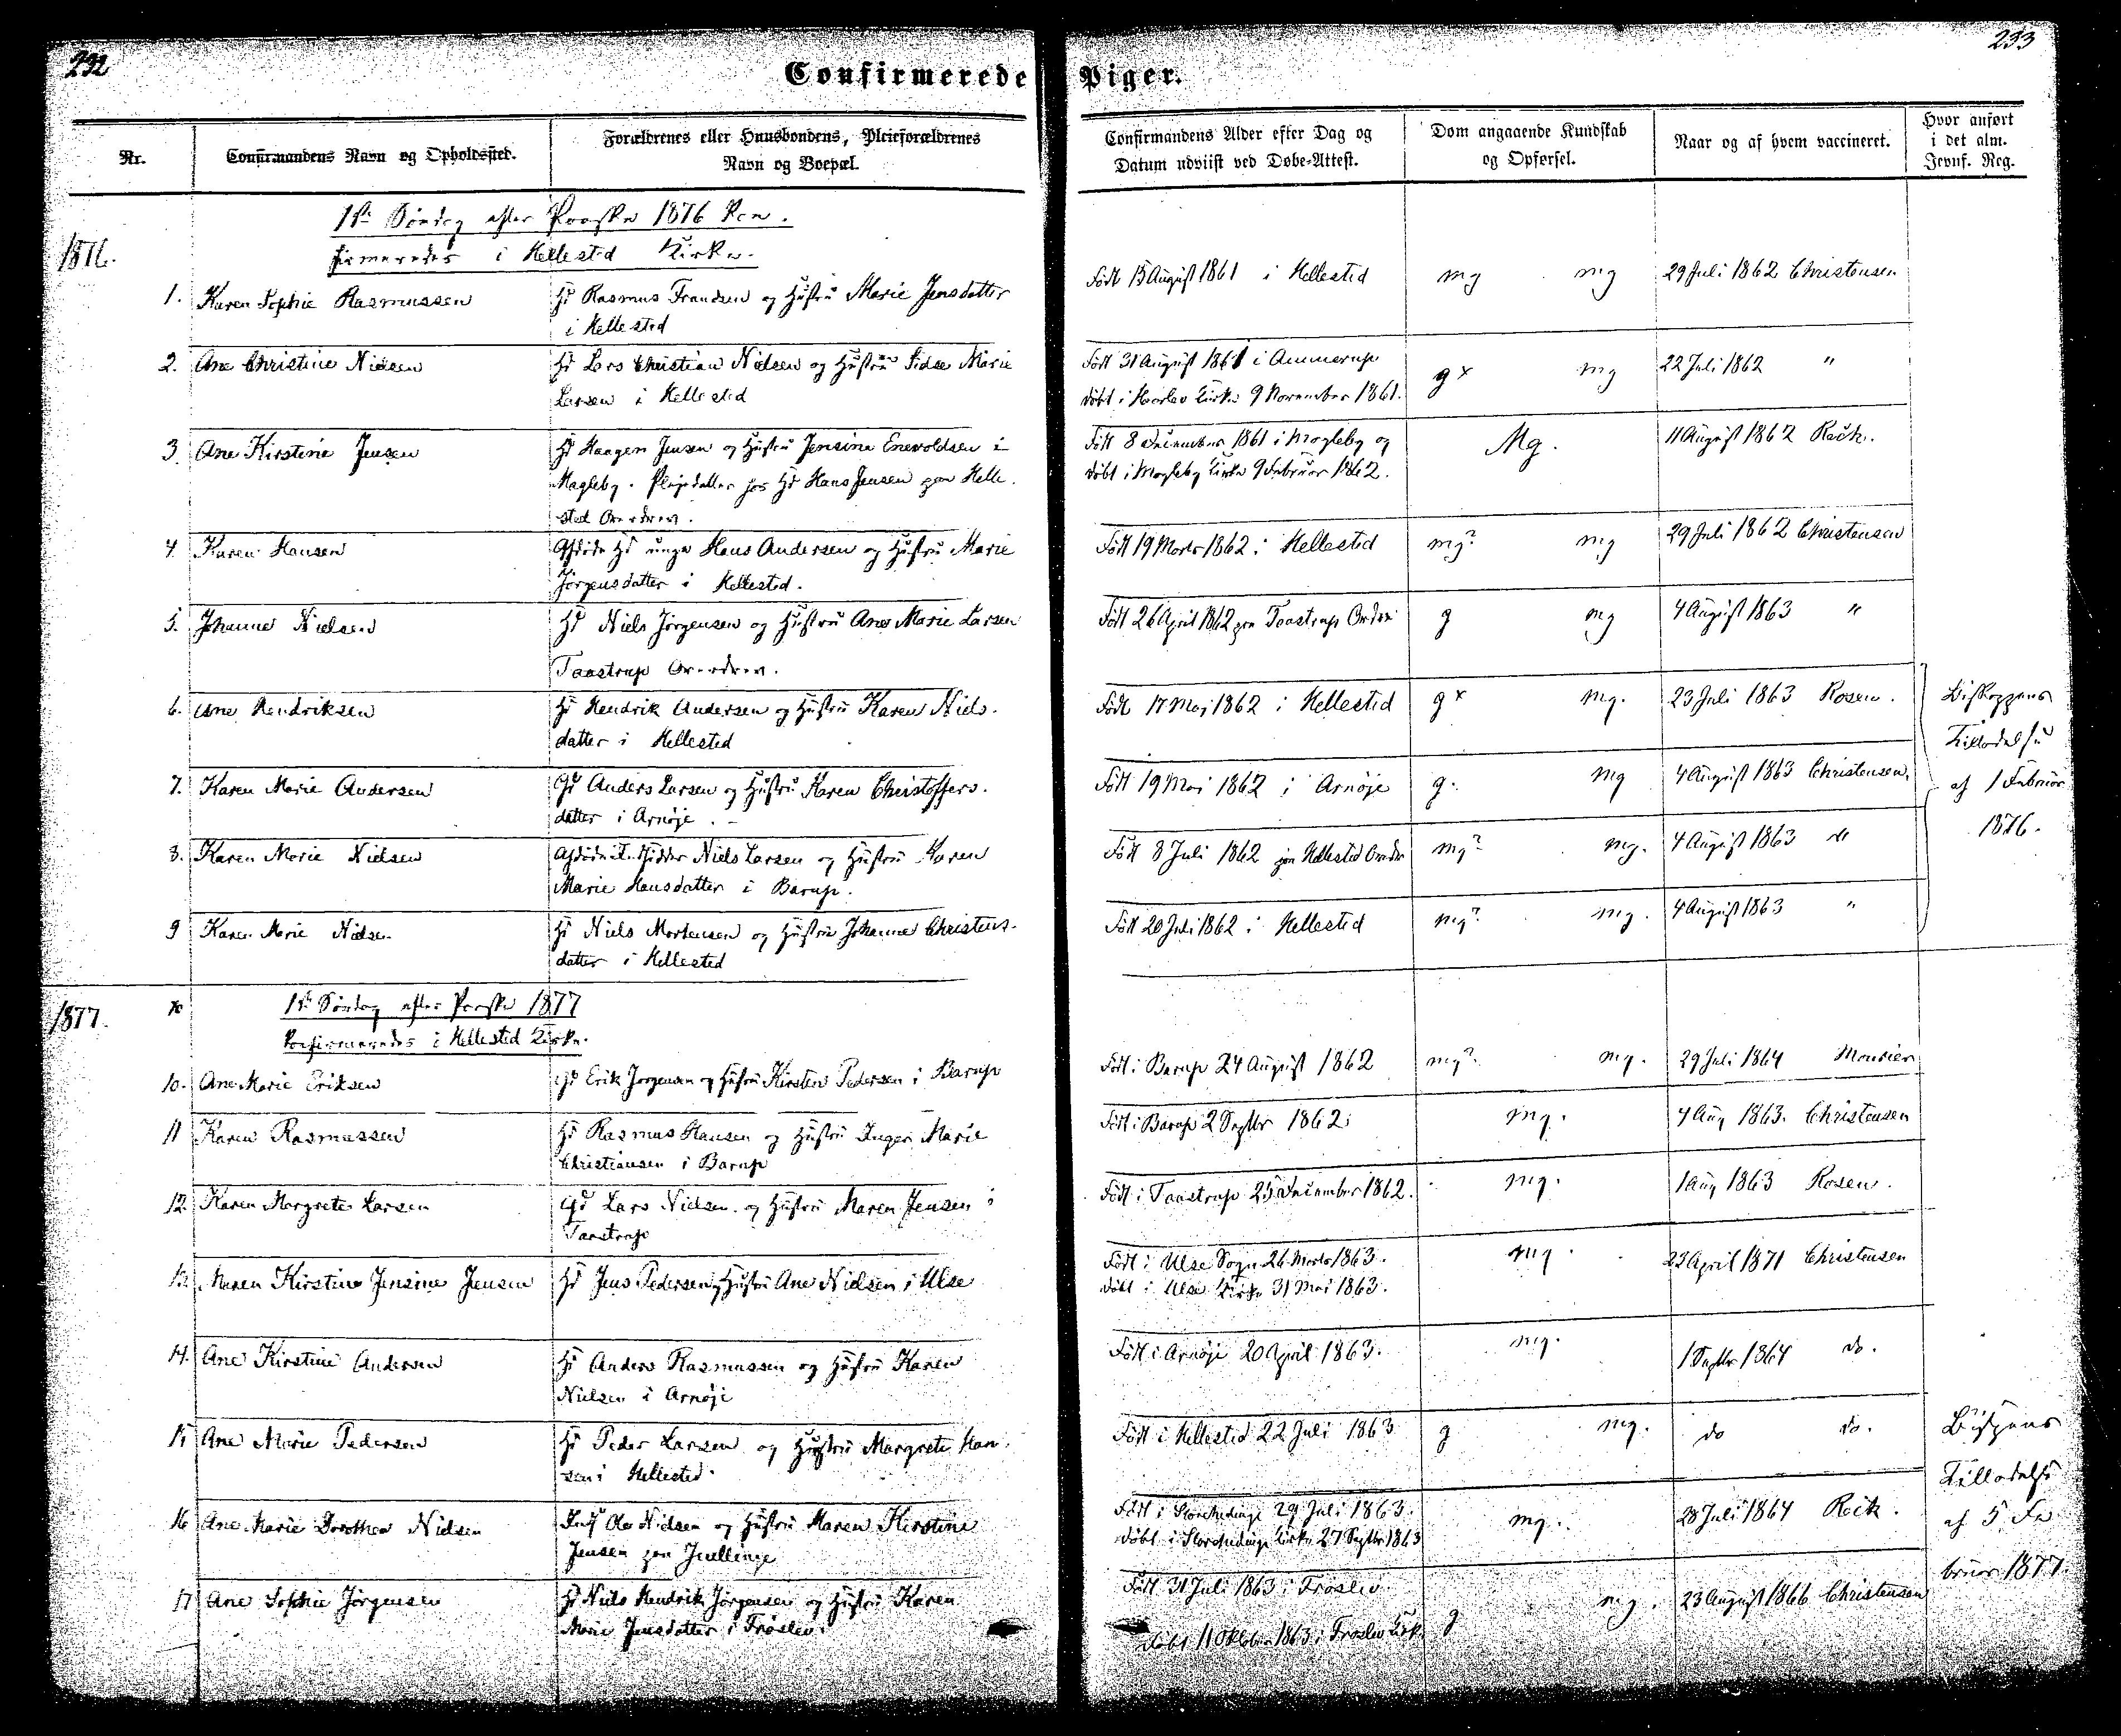 232
233
Confirmerede Piger.
Nr.
Confirmandens Navn og Opholdssted.
Forældrenes eller Huusbondens, Pleieforældrenes
Navn og Boepæl.
Confirmandens Alder efter Dag og
Datum udviist ved Døbe-Attest.
Dom angaaende Kundskab
og Opførsel.
Naar og af hvem vaccineret.
Hvor anført
i det alm.
Jevnf. Reg.
1876.
1ste Søndag efter Paaske 1876 Kon-
firmeredes i Hellested Kirke.
1. Karen Sophie Rasmussen
Hd Rasmus Frandsen og Hustru Marie Jensdatter
i Hellested
Født 15 August 1861 i Hellested
mg mg
29 Juli 1862 Christensen
2. Ane Christine Nielsen
Hd Lars Christian Nielsen og Hustru Sidse Marie
Larsen i Hellested
Født 31 August 1861 i Ammerup
døbt i Kirke 9 November 1861.
g x mg
22 Juli 1862 "
3. Ane Kirstine Jensen
Hd Haagen Jensen og Hustru Jensine Enevoldsen i
Magleby. Plejedatter hos Hd Hans Jensen paa Helle-
sted Overdrev.
Født 8 December 1861 i Magleby og
døbt i Magleby Kirke 9 Februar 1862.
Mg.
11 August 1862 Reck.
4. Karen Hansen
Afdøde Hd unge Hans Andersen og Hustru Marie
Jørgensdatter i Hellested.
Født 19 Marts 1862 i Hellested
mg? mg
29 Juli 1862 Christensen
5. Johanne Nielsen
Hd Niels Jørgensen og Hustru Ane Marie Larsen
Taastrup Overdrev.
Født 26 April 1862 paa Taastrup Overdrev
g mg
4 August 1863 "
6. Ane Hendriksen
Hd Hendrik Andersen og Hustru Karen Niels-
datter i Hellested
Født 17 Maj 1862 i Hellested
g x mg.
23 Juli 1863 Rosen.
7. Karen Marie Andersen
Gd Anders Larsen og Hustru Karen Christoffers-
datter i Arnøje.
Født 19 Maj 1862 i Arnøje
g. mg
4 August 1863 Christensen.
8. Karen Marie Nielsen
Niels Larsen og Hustru Karen
Marie Hansdatter i Barup.
Født 8 Juli 1862 paa Hellested Overdr
mg? mg.
4 August 1863 "
9 Karen Marie Nielsen
Hd Niels Mortensen og Hustru Johanne Christens-
datter i Hellested
Født 20 Juli 1862 i Hellested
mg? mg.
4 August 1863 "
Biskoppens
Tilladelse
af 1 Februar
1876.
1877.
1ste Søndag efter Paaske 1877
Konfirmeredes i Hellested Kirke.
10. Ane Marie Eriksen
Gd Erik Jørgensen og Hustru Kirsten Pedersen i Barup
Født i Barup 24 August 1862
mg? mg.
29 Juli 1864 Mourier
11 Karen Rasmussen
Hd Rasmus Hansen og Hustru Inger Marie
Christiansen i Barup
Født i Barup 2 Septbr 1862
mg.
4 Aug 1863. Christensen
12. Karen Margrete Larsen
Gd Lars Nielsen og Hustru Maren Jensen i
Taastrup
Født i Taastrup 25 December 1862.
mg.
1 Aug 1863 Rosen.
13. Maren Kirstine Jensine Jensen
Hd Jens Pedersen og Hustru Ane Nielsen i Ulse
Født i Ulse Sogn 26 Marts 1863.
døbt i Ulse Kirke 31 Mai 1863.
mg.
23 April 1871 Christensen
14. Ane Kirstine Andersen
Hd Anders Rasmussen og Hustru Karen
Nielsen i Arnøje
Født i Arnøje 20 April 1863.
mg.
1 Septbr 1864 do.
15 Ane Marie Pedersen
Hd Peder Larsen og Hustru Margrete Han-
sen i Hellested.
Født i Hellested 22 Juli 1863
g mg.
do do.
16 Ane Marie Dorothea Nielsen
Indf Ole Nielsen og Hustru Maren Kirstine
Jensen paa Juellinge
Født i Storehedinge 29 Juli 1863.
døbt i Storehedinge Kirke 27 Septbr 1863
mg.
28 Juli 1864 Reck.
17 Ane Sophie Jørgensen
Hd Niels Hendrik Jørgensen og Hustru Karen
Marie Jensdatter i Frøslev.
Født 31 Juli 1863 i Frøslev.
døbt 11 Oktober 1863 i Frøslev Kirk.
g mg.
23 August 1866 Christensen
Bispens
Tilladelse
af 5 Fe
bruar 1877.